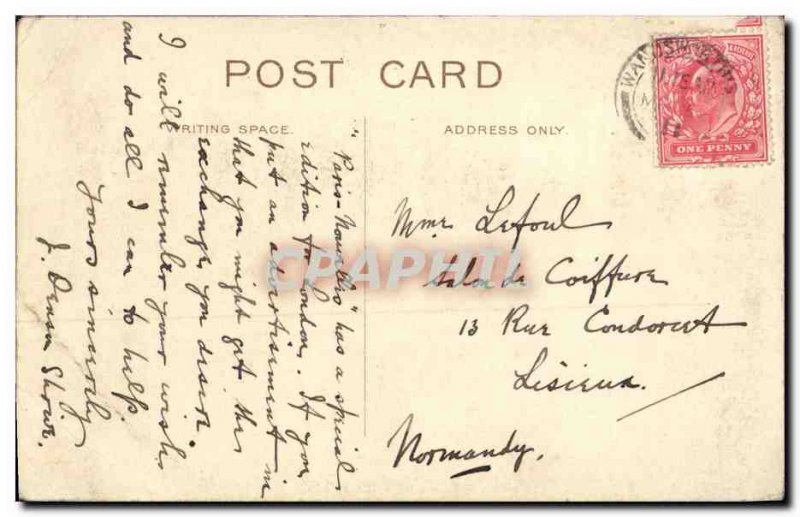 POST CARD
WRITING SPACE.
ADDRESS ONLY.
"Paris-Nouvelles" has a special
edition for London. If you
put an advertisement in
that you might get the
exchange you desire.
I will remember your wish
and do all I can to help.
Yours sincerely
J.
Mme Lefoul
Salon de Coiffure
13 Rue Condorcet
Lisieux.
Normandy.
ONE PENNY
CPAPHIL